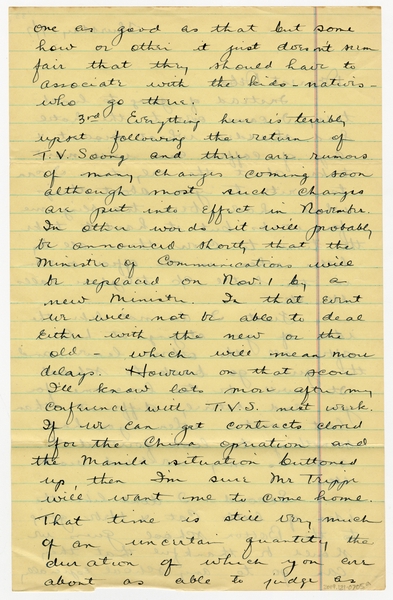 one as good as that but some
how or other it just doesn't seem
fair that they should have to
associate with the kids - natives -
who go there.
3rd Everything here is terribly
upset following the return of
T.V. Soong and there are rumors
of many changes coming soon
although most such changes
are put into effect in November.
In other words it will probably
be announced shortly that the
Ministry of Communications will
be replaced on Nov. 1 by a
new Minister. In that event
we will not be able to deal
either with the new or the
old - which will mean more
delays. However on that score
I'll know lots more after my
conference with T.V.S. next week.
If we can get contracts closed
for the China operation and
the Manila situation buttoned
up, then I'm sure Mr Trippe
will want me to come home.
That time is still very much
of an uncertain quantity the
duration of which you are
about as able to judge as